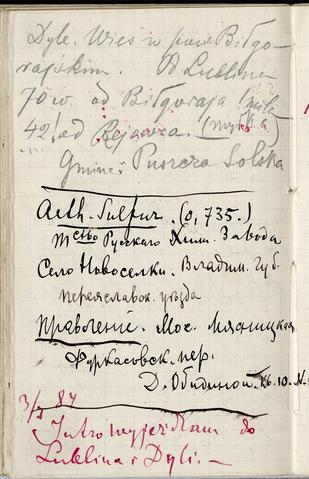 Dyle. Wieś w pow. Biłgo-
rajskim. Od Lublina
70 w. od Biłgoraja 1 mila
42! od Rejowca.
Gmina: Puszcza Solska
Aeth. Sulfur. (0,735.)
Т-ство Русскаго Хим. Завода
Село Новоселки. Владим. Губ.
переяславск. уѣзда
Правленіе. Мос. Мясницкая
Фуркасовск. пер.
Д. Обидиной. кв. 10.
3/ 84
Jutro wyjeżdżam do
Lublina i Dyli. —